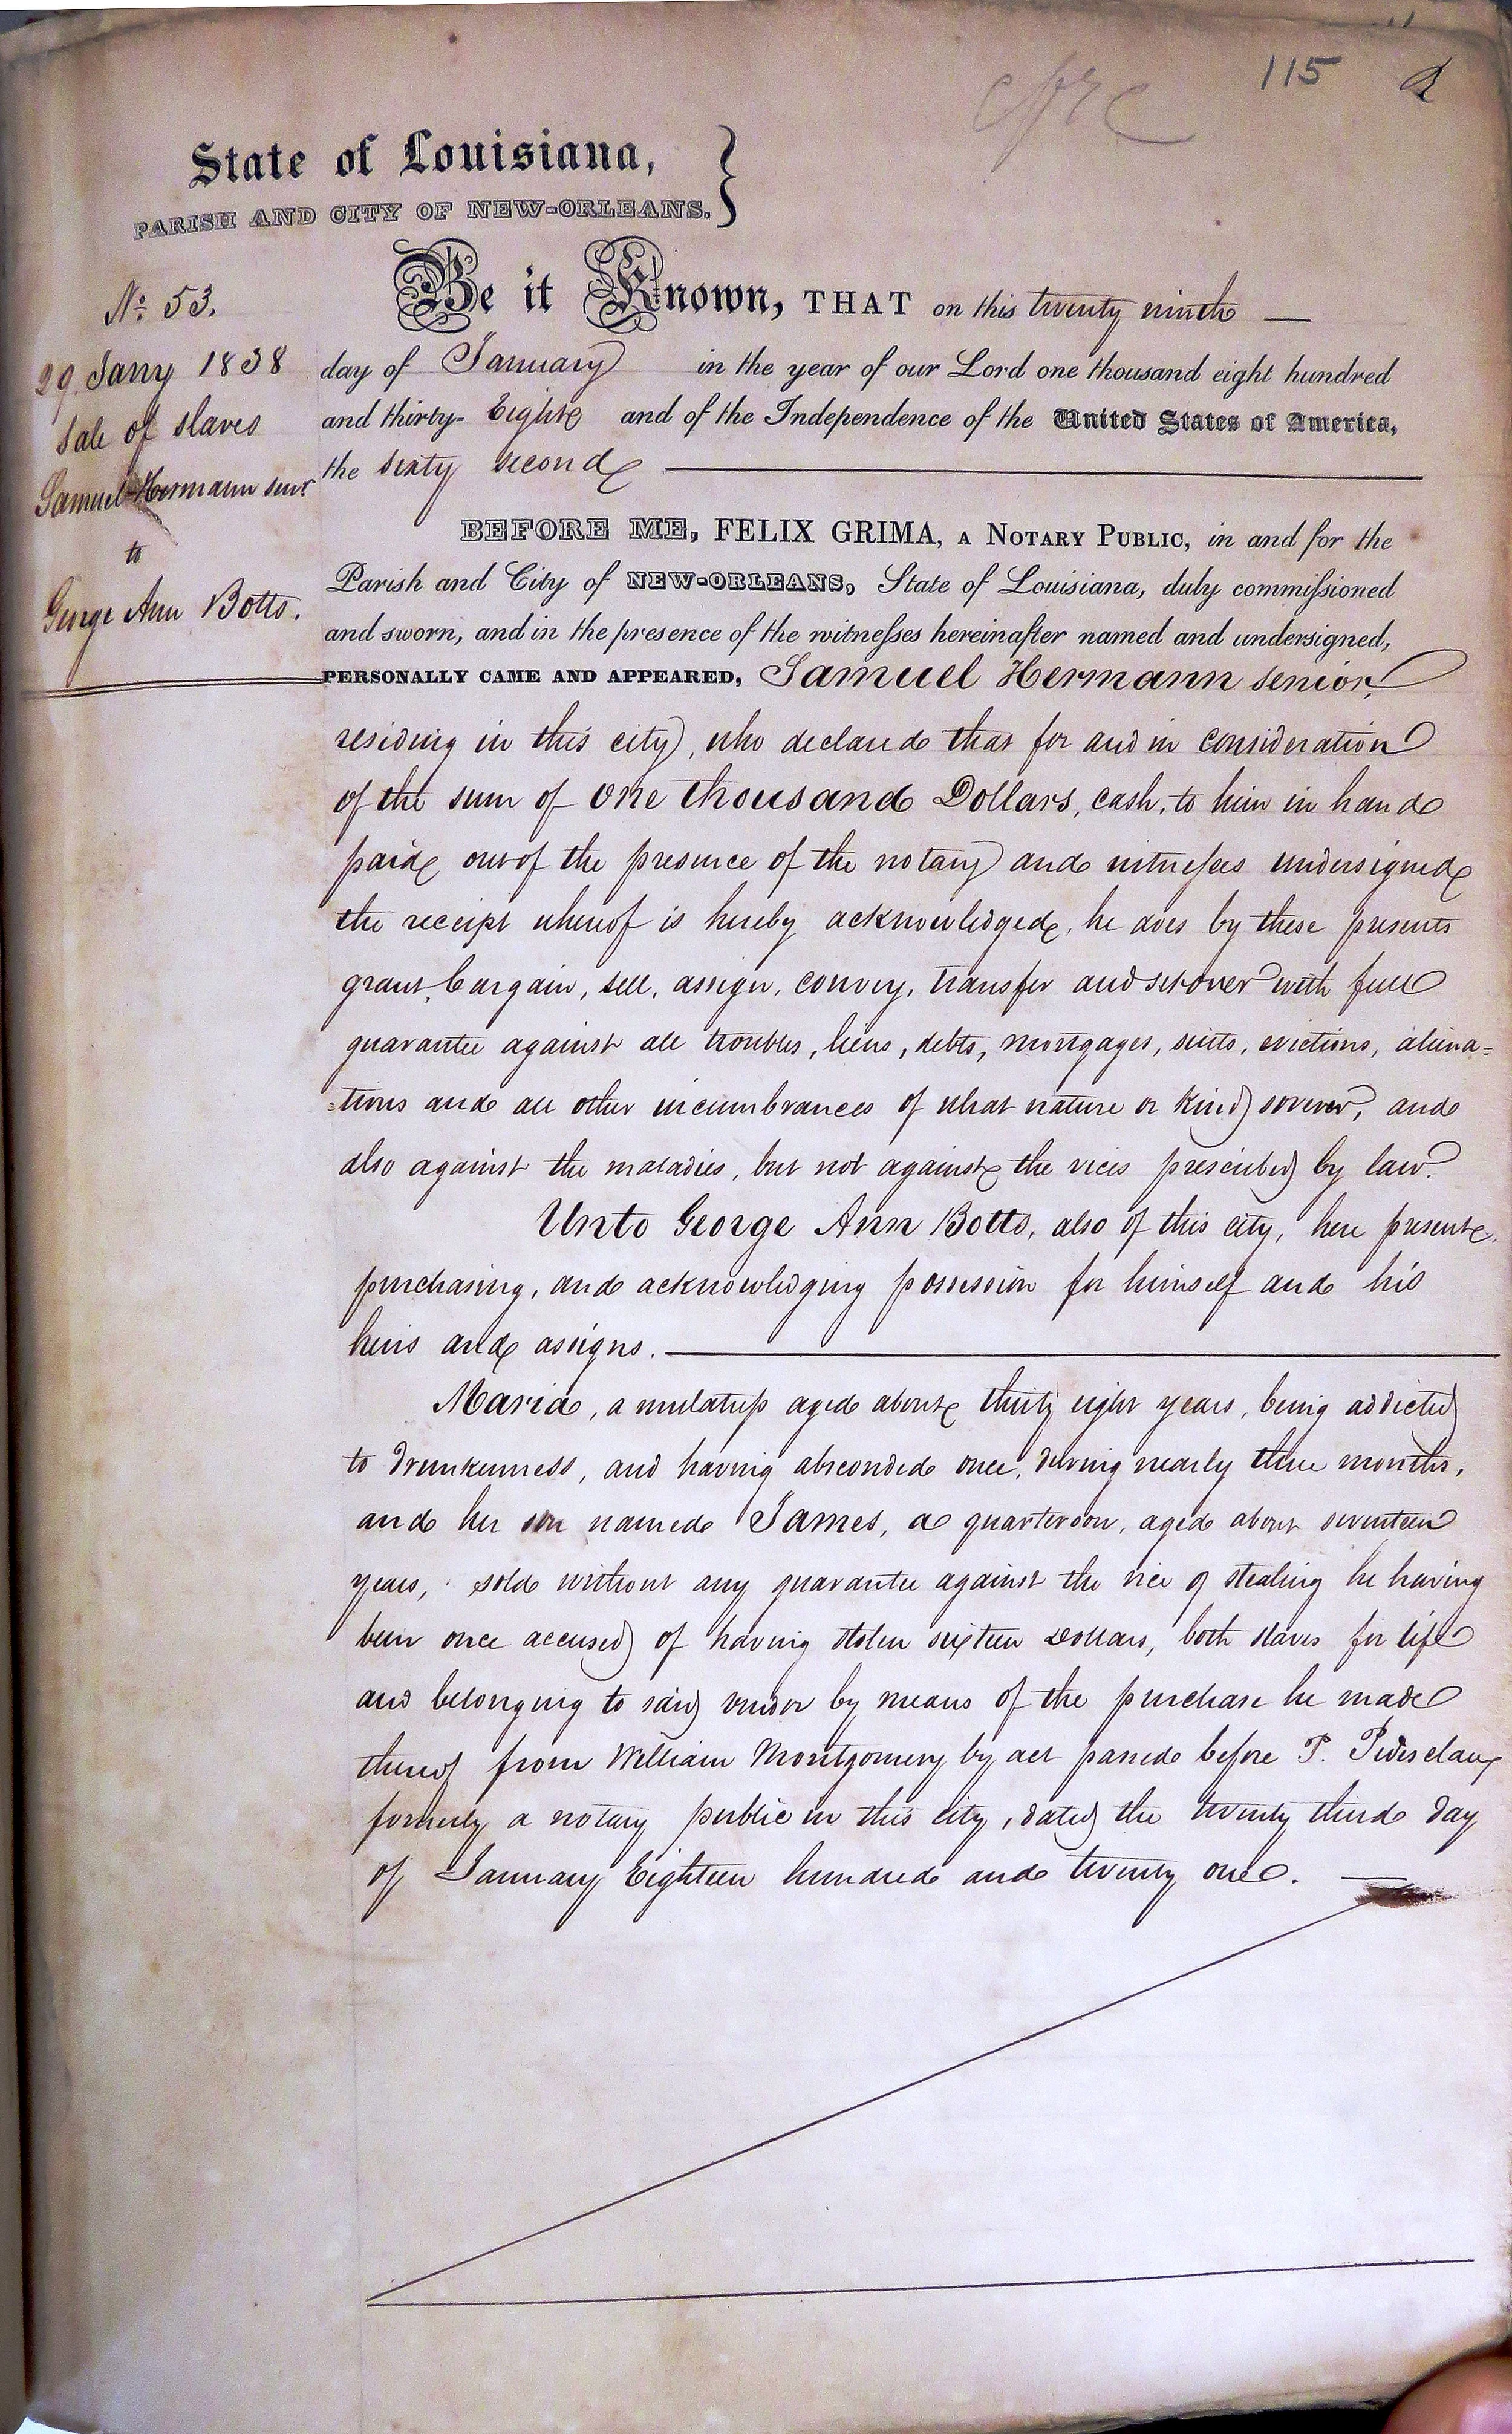 115
State of Louisiana,
PARISH AND CITY OF NEW-ORLEANS.
No. 53.
29. Jany 1838
Sale of slaves
Samuel Hermann senr.
to
George Ann Botts.
Be it Known, THAT on this twenty ninth
day of January in the year of our Lord one thousand eight hundred
and thirty- Eight and of the Independence of the United States of America,
the sixty second
BEFORE ME, FELIX GRIMA, A NOTARY PUBLIC, in and for the
Parish and City of NEW-ORLEANS, State of Louisiana, duly commissioned
and sworn, and in the presence of the witnesses hereinafter named and undersigned,
PERSONALLY CAME AND APPEARED, Samuel Hermann senior,
residing in this city, who declared that for and in consideration
of the sum of one thousand Dollars, cash, to him in hand
paid out of the presence of the notary and witnesses undersigned
the receipt whereof is hereby acknowledged, he does by these presents
grant, bargain, sell, assign, convey, transfer and set over with full
guarantee against all troubles, liens, debts, mortgages, suits, evictions, aliena=
=tions and all other incumbrances of what nature or kind soever, and
also against the maladies, but not against the vices prescribed by law.
Unto George Ann Botts, also of this city, here present,
purchasing, and acknowledging possession for himself and his
heirs and assigns.
Maria, a mulatress aged about thirty eight years, being addicted
to drunkenness, and having absconded once, during nearly three months,
and her son named James, a quarteroon, aged about seventeen
years, sold without any guarantee against the vice of stealing he having
been once accused of having stolen sixteen Dollars, both slaves for life
and belonging to said vendor by means of the purchase he made
thereof from William Montgomery by act passed before P. Pedesclaux
formerly a notary public in this city, dated the twenty third day
of January Eighteen hundred and twenty one.